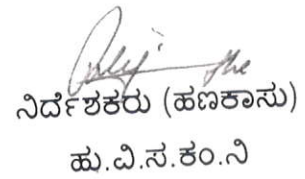 ನಿರ್ದೇಶಕರು (ಹಣಕಾಸು)
ಹು.ವಿ.ಸ.ಕಂ.ನಿ